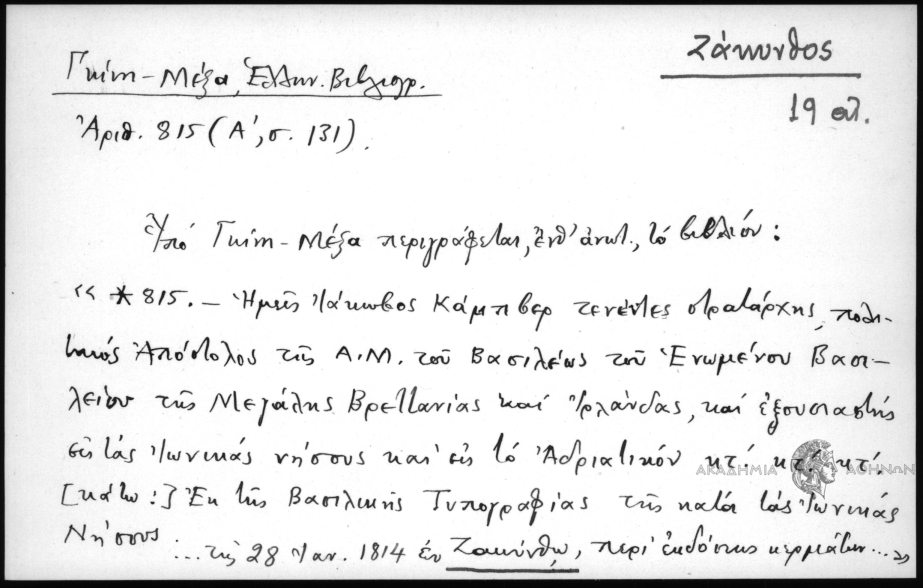 Ζάκυνθος
19 αι.
Γκίνη-Μέξα, Ἑλλην. Βιβλιογρ.
Ἀριθ. 815 (Α΄, σ. 131).
Ὑπό Γκίνη-Μέξα περιγράφεται, ἐνθ' ἀνωτ., τό βιβλίον:
«*815.— Ἡμεῖς Ἰάκωβος Κάμπβερ τενέντες στρατάρχης, πολι-
τικός Ἀπόστολος τῆς Α.Μ. τοῦ Βασιλέως τοῦ Ἑνωμένου Βασι-
λείου τῆς Μεγάλης Βρεττανίας καί Ἰρλάνδας, καί ἐξουσιαστής
εἰς τάς Ἰωνικάς νήσους καί εἰς τό Ἀδριατικόν κτ. κτ. κτ.
[κάτω:] Ἐκ τῆς Βασιλικῆς Τυπογραφίας τῆς κατά τάς Ἰωνικάς
Νήσους ... τῇ 28 Ἰαν. 1814 ἐν Ζακύνθῳ, περί ἐκδόσεως κερμάτων...»
ΑΚΑΔΗΜΙΑ ΑΘΗΝΩΝ